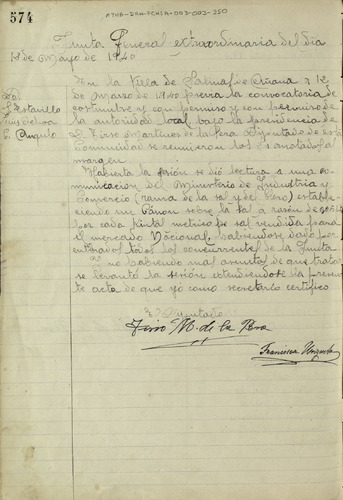 574
ATHA-DAH-FCHSA-003-003-250
Junta General extraordinaria del día
1º de Mayo de 1940
En la Villa de Salinas de Añana a 12
de Marzo de 1940 previa la convocatoria de
costumbre y con permiso
la autoridad local bajo la presidencia de
D. Virso Martinez de la Pera Diputado de esta
Comunidad se reunieron los anotados al
margen
Abierta la sesión se dió lectura a una co
municacion del Ministerio de Industria y
Comercio (rama de la sal y del) estable
ciendo un Canon sobre la sal a razon de
por cada Kintal metrico de sal vendida para
el mercado Nacional, habiendose dado por
enterados todos los concurrentes de la Junta
Y no habiendo mas asuntos de que tratar
se levantó la sesión extendiendose la presen
te acta de que yó como secretario certifico
El Diputado
Virso M. de la Pera
Francisco Angulo